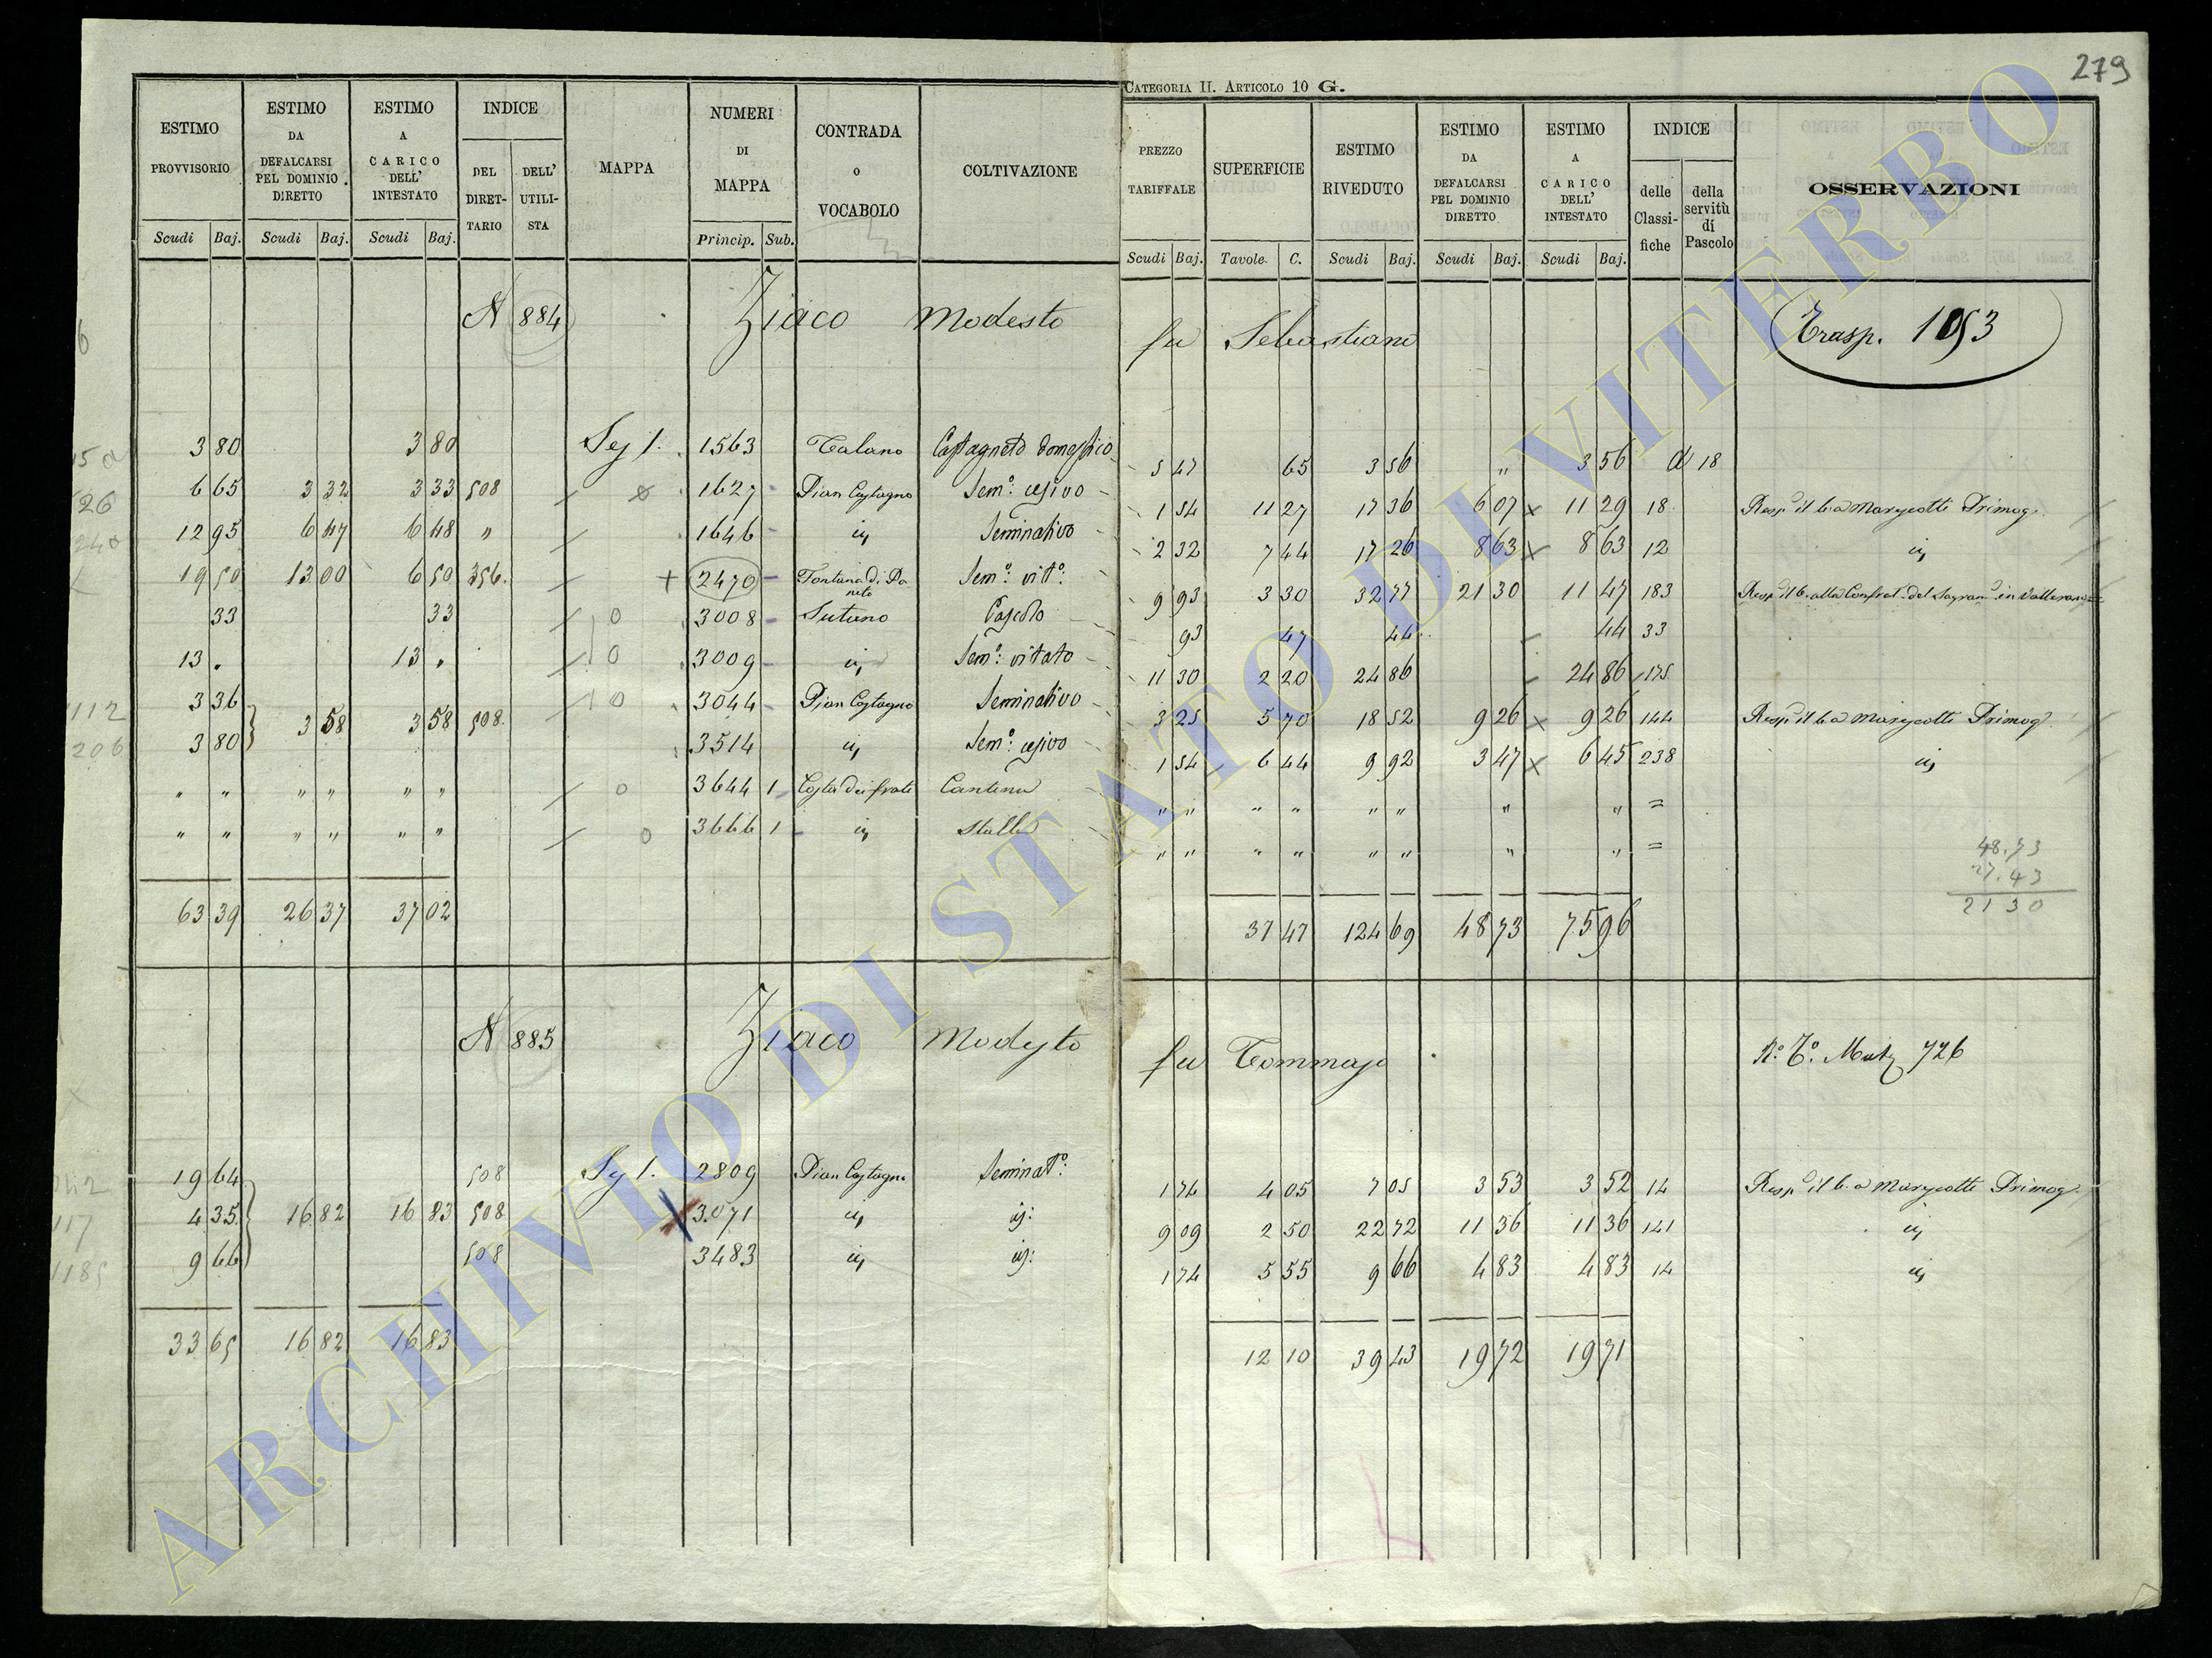 279
CATEGORIA II. ARTICOLO 10 G.
ESTIMO PROVVISORIO Scudi Baj.
ESTIMO DA DEFALCARSI PEL DOMINIO DIRETTO Scudi Baj.
ESTIMO A CARICO DELL' INTESTATO Scudi Baj.
INDICE DEL DIRETTARIO DELL' UTILISTA
MAPPA
NUMERI DI MAPPA Princip. Sub.
CONTRADA o VOCABOLO
COLTIVAZIONE
PREZZO TARIFFALE Scudi Baj.
SUPERFICIE Tavole C.
ESTIMO RIVEDUTO Scudi Baj.
ESTIMO DA DEFALCARSI PEL DOMINIO DIRETTO Scudi Baj.
ESTIMO A CARICO DELL' INTESTATO Scudi Baj.
INDICE delle Classifiche della servitù di Pascolo
OSSERVAZIONI
N 884 Ziaco Modesto fu Sebastiano Trasp. 1053
3 80 3 80 Sez 1. 1563 Talano Castagneto domestico 5 47 65 3 56 " 3 56 18
6 65 3 32 3 33 508 1627 Pian Castagno Sem.o cesivo 1 54 11 27 17 36 6 07 x 11 29 18 Resp. il b. a Marescotti Primog.
12 95 6 47 6 48 " 1646 id Seminativo 2 32 7 44 17 26 8 63 x 8 63 12 id
19 50 13 00 6 50 356. + 2470 Fontana di Paneto Sem.o vit.o 9 93 3 30 32 77 21 30 11 47 183 Resp. il b. alla Confrat. del Sagram. in Vallerano
33 33 0 3008 Sutano Pascolo 93 47 44 44 33
13 . 13 . 0 3009 id Sem.o vitato 11 30 2 20 24 86 24 86 175
3 36 0 3044 Pian Castagno Seminativo 3 25 5 70 18 52 9 26 x 9 26 144 Resp. il b. a Marescotti Primog.
3 80 3 58 3 58 508. 3514 id Sem.o cesivo 1 54 6 44 9 92 3 47 x 6 45 238 id
" " " " " " 0 3644 1 Costa dei frati Cantina " " " " " " " " =
" " " " " " 0 3666 1 id Stalla " " " " " " " " =
48.73
27.43
21 30
63 39 26 37 37 02 37 47 124 69 48 73 75 96
N 885 Ziaco Modesto fu Tommaso 726
19 64 508 Sez 1. 2809 Pian Castagno Seminat.o 1 74 4 05 7 05 3 53 3 52 14 Resp. il b. a Marescotti Primog.
4 35 16 82 16 83 508 3071 id id: 9 09 2 50 22 72 11 36 11 36 141 id
9 66 508 3483 id id: 1 74 5 55 9 66 4 83 4 83 14 id
33 65 16 82 16 83 12 10 39 43 19 72 19 71
ARCHIVIO DI STATO DI VITERBO